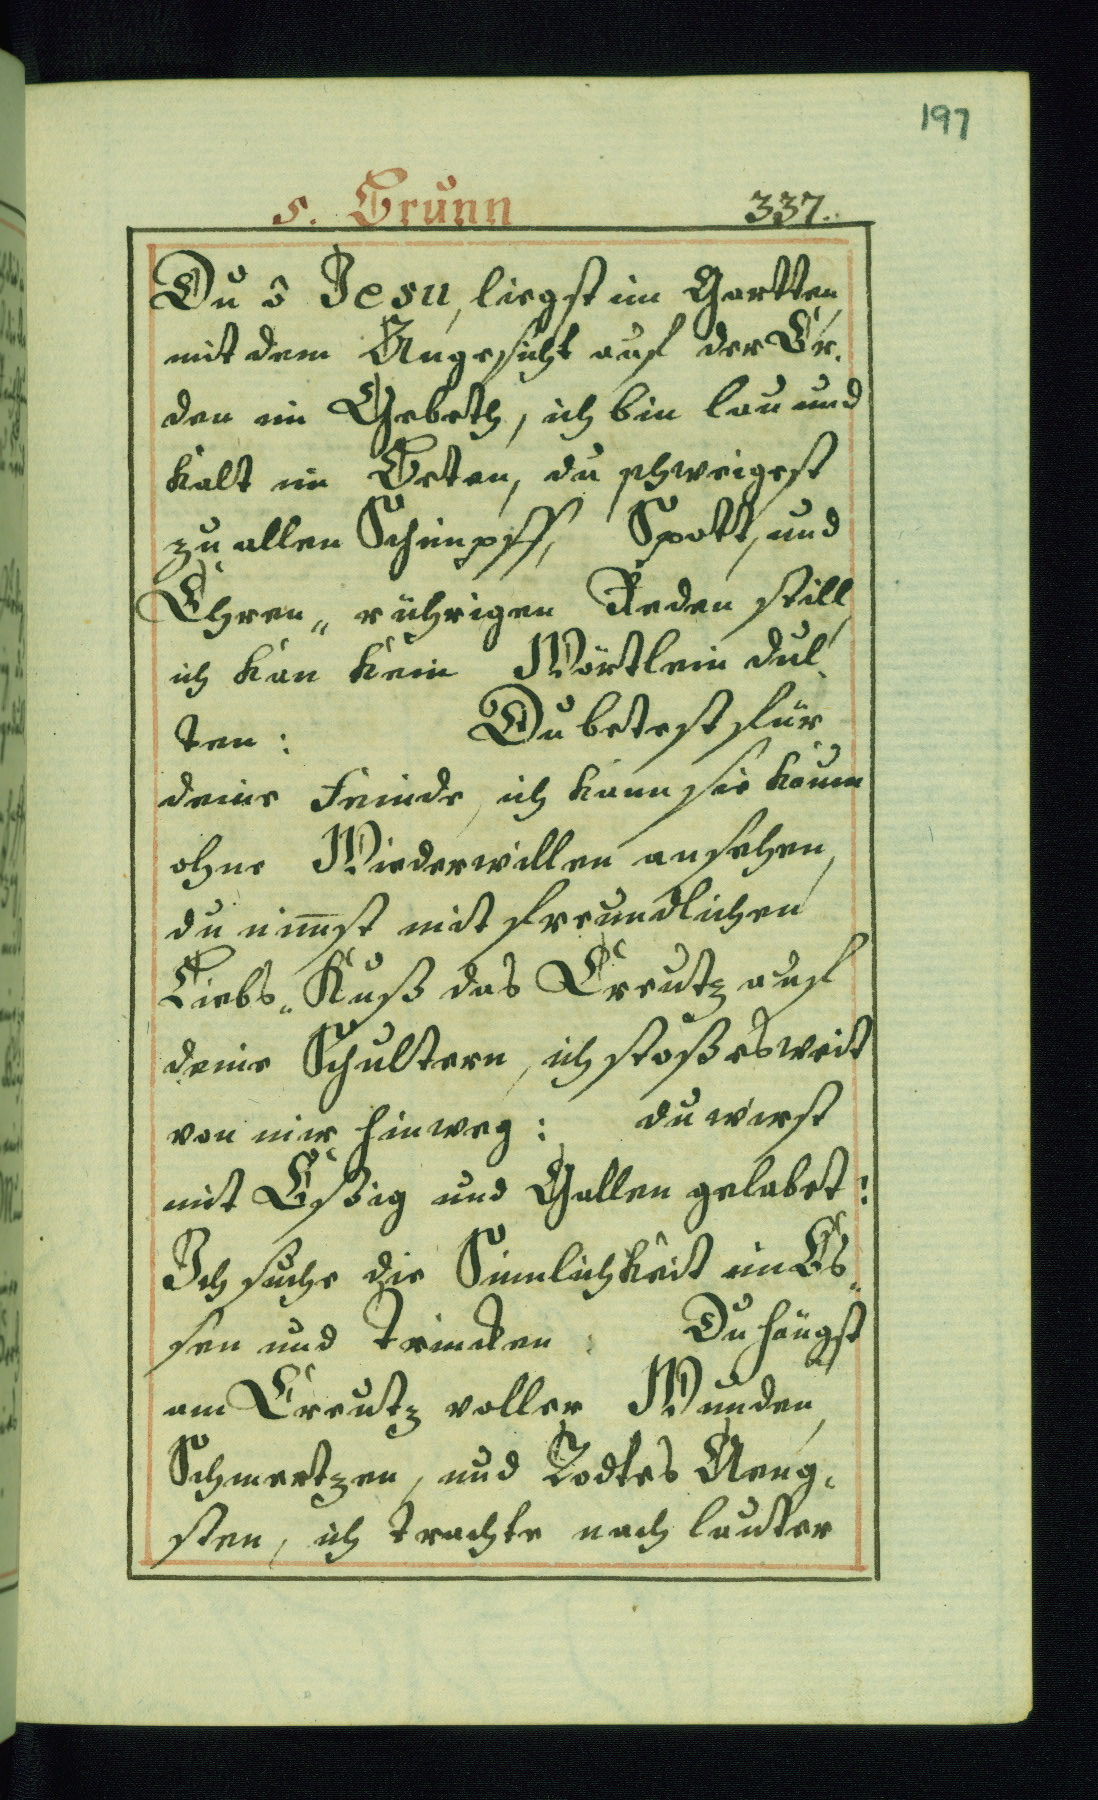 197
5. Brunn 337.
Du ô Jesu, liegst im Gartten
mit dem Angesicht auf der Er,
den im Gebeth, ich bin lau und
kalt im Beten, du schweigest
zu allen Schimpff, Spott, und
Ehren„ rührigen Reden still,
ich kan kein Wörtlein dul,
ten: Du betest für
deine Feinde, ich kann sie kaum
ohne Wiederwillen ansehen,
du nim̅st mit freundlichen
Liebs„ Kuß das Creutz auf
deine Schultern, ich stoß es weit
von mir hinweg: du wirst
mit Eßig und Gallen gelabet:
Ich suche die Sinnlichkeit im Es„
sen und Trincken: Du hängst
am Creutz voller Wunden,
Schmertzen, und Todtes Aeng,
sten, ich trachte nach lauter